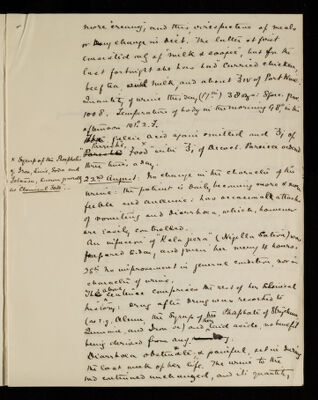 more creamy, and this irrespective of meals
or any change in diet. The latter at first
consisted only of milk & congee, but for the
last fortnight she has had curried chicken,
beef tea, milk, and about ℥iv of Port Wine.
Quantity of urine this day (17th) 38 ozs: Spec. grav.
1008. Temperature of body in the morning 98°, in the
afternoon 101°.2.F.
Gallic acid again omitted and ℥j of
"Parrish's Food" with ℥j of Decoct. Pareira ordered
three times a day.
* Syrup of the Phosphates
of Iron, Lime, Soda and
Potassa, known generally
as Chemical Food.
22nd August. No change in the character of the
urine: the patient is daily becoming more & more
feeble and anæmic: has occasional attacks
of vomiting and diarrhœa, which, however
are easily controlled.
An infusion of "Kala jeera" (Nigella Sativa) was
prepared today, and given her every 4 hours.
26th No improvement in general condition, nor in
character of urine.
The above sentence comprises the rest of her clinical
history: drug after drug was resorted to
(as e.g. Alum the Syrup of the Phosphate of Strychnia,
Quinine, and Iron &c) and acids, no benefit
being derived from any.
Diarrhœa obstinate & painful, set in during
the last week of her life. The urine to the
end continued unchanged, and its quantity,